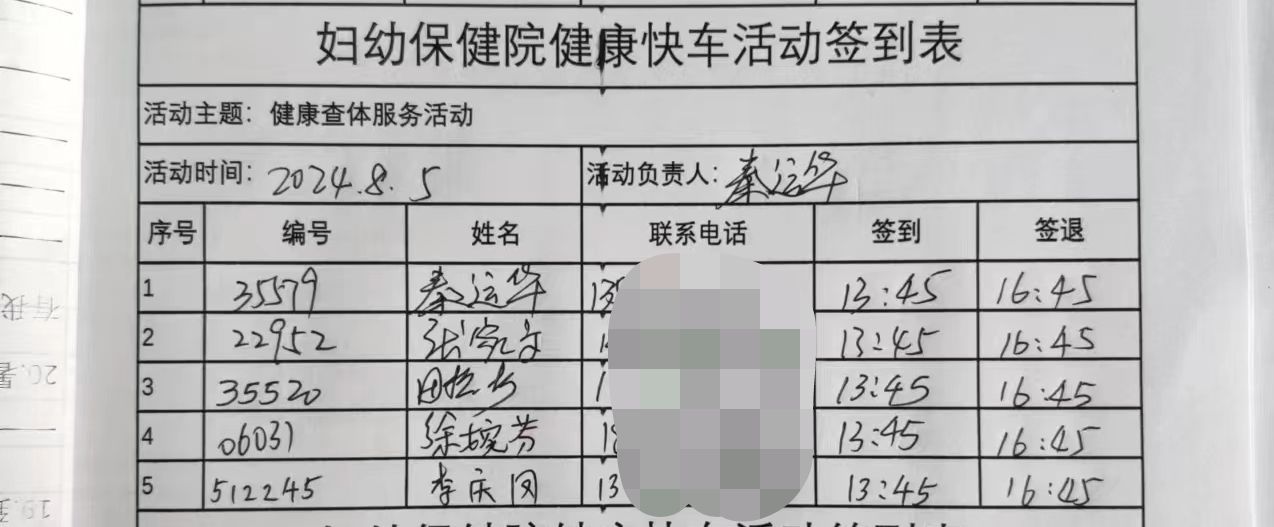 妇幼保健院健康快车活动签到表
活动主题：健康查体服务活动
活动时间：2024.8.5 活动负责人：秦运华
序号 编号 姓名 联系电话 签到 签退
1 35579 秦运华 13:45 16:45
2 22952 张家文 13:45 16:45
3 35520 13:45 16:45
4 06031 徐婉芳 13:45 16:45
5 512245 李庆同 13 13:45 16:45